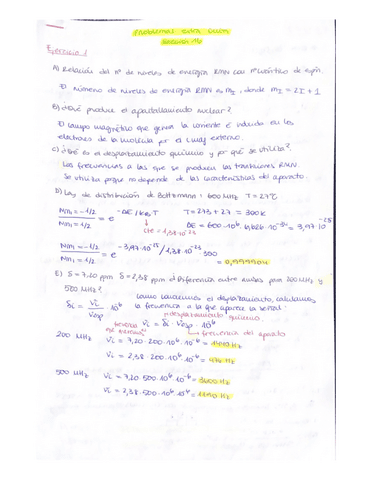 Problemas extra
Sesión 16
Ejercicio 1
A) Relación del nº de niveles de energía RMN con nº cuántico de espín.
El número de niveles de energía RMN es mI, donde mI = 2I + 1
B) ¿Qué produce el apantallamiento nuclear?
El campo magnético que genera la corriente e⁻ inducida en los
electrones de la molécula por el c.mag externo.
C) ¿Qué es el desplazamiento químico y por qué se utiliza?
Las frecuencias a las que se producen las transiciones RMN.
Se utiliza porque no depende de las características del aparato.
D) Ley de distribución de Boltzmann: 600 MHz T = 27℃
Nm1 = -1/2 / Nm1 = 1/2 = e^-ΔE / KB·T T = 273 + 27 = 300K
cte = 1,38·10^-23 ΔE = 600·10^6 · 6,626·10^-34 = 3,97·10^-25
Nm1 = -1/2 / Nm1 = 1/2 = e^-3,97·10^-25 / 1,38·10^-23 · 300 = 0,999904
E) δ = 7,20 ppm δ = 2,38 ppm ¿Diferencia entre ambas para 200 MHz y
500 MHz?
como conocemos el desplazamiento, calculamos
δi = νi / νesp · 10^6 la frecuencia a la que aparece la señal.
desplazamiento químico.
νi = δi · νesp · 10^-6
frecuencia del aparato
200 MHz νi = 7,20·200·10^6·10^-6 = 1440 Hz
νi = 2,38·200·10^6·10^-6 = 476 Hz
500 MHz νi = 7,20·500·10^6·10^-6 = 3600 Hz
νi = 2,38·500·10^6·10^-6 = 1190 Hz